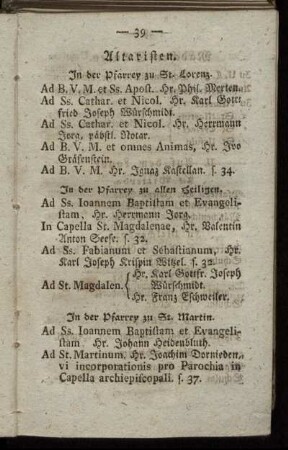 — 39 —
Altaristen.
In der Pfarrey zu St. Lorenz.
Ad B. V. M. et Ss. Apost. Hr. Phil. Merten.
Ad Ss. Cathar. et Nicol. Hr. Karl Gott-
fried Joseph Würschmidt.
Ad Ss. Cathar. et Nicol. Hr. Herrmann
Jorg, päbstl. Notar.
Ad B. V. M. et omnes Animas, Hr. Ivo
Gräfenstein.
Ad B. V. M. Hr. Ignaz Kastellan. s. 34.
In der Pfarrey zu allen Heiligen.
Ad Ss. Ioannem Baptistam et Evangeli-
stam, Hr. Herrmann Jorg.
In Capella St. Magdalenae, Hr. Valentin
Anton Seese. s. 32.
Ad Ss. Fabianum et Sebastianum, Hr.
Karl Joseph Krispin Witzel. s. 32.
Ad St. Magdalen. { Hr. Karl Gottfr. Joseph
Würschmidt.
Hr. Franz Eschweiler.
In der Pfarrey zu St. Martin.
Ad Ss. Ioannem Baptistam et Evangeli-
stam Hr. Johann Heidenbluth.
Ad St. Martinum, Hr. Joachim Dornieden,
vi incorporationis pro Parochia in
Capella archiepiscopali. s. 37.